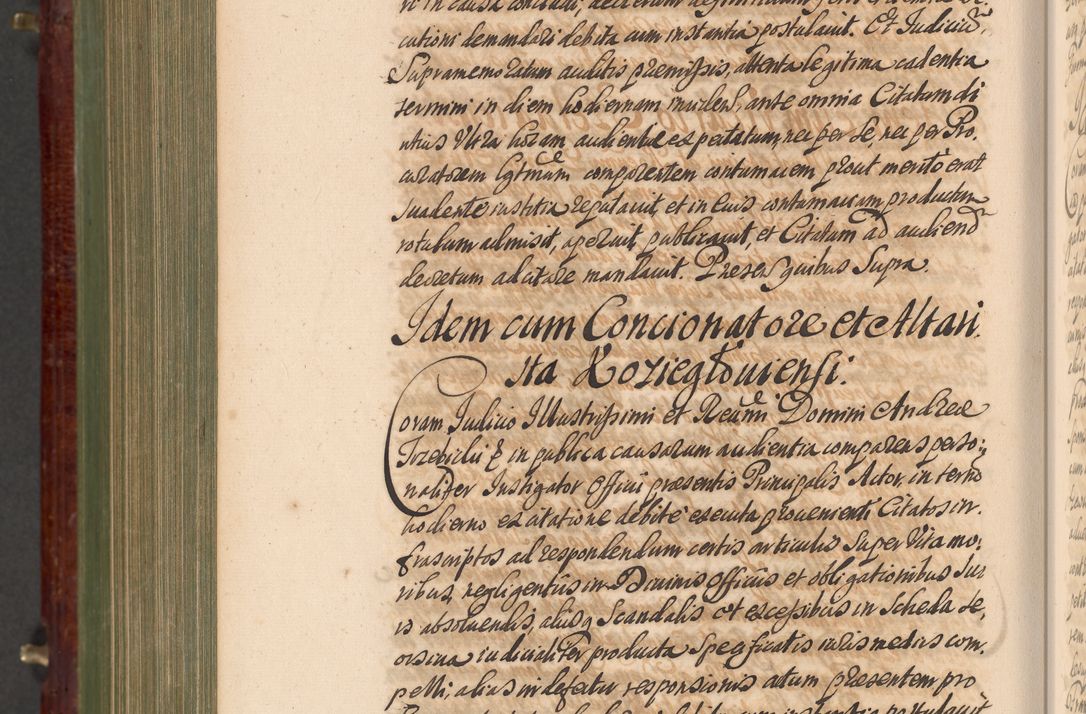 cutioni demandari debita cum instantia postulavit. Et Judiciũ
Supramemoratum auditis præmissis, attenta legitima cadentia
termini in diem hodiernam inciden, ante omnia Citatum di
utius Ultra horam audientiæ expectatum, nec per se, nec per Pro,
curatorem Lgtmum comparentem contumacem prout merito erat
suadente iustitia reputavit, et in eius contumaciam productum
rotulum admisit, aperuit, publicavit, et Citatum ad audiend
decretum adcitare mandavit. Presen quibus Supra.
Idem cum Concionatore et Altari
sta Kozieglouiensi.
Coram Judicio Illustrissimi et Reũmi Domini Andreæ
Trzebicki & in publica causarum audientia comparens perso:
naliter Instigator Officii præsentis Principalis Actor, in termo
hodierno ex citatione debite executa provenienti Citatos in,
frascriptos ad respondendum certis articulis Super Vita mo:
ribus, negligentiis in Divinis Officiis et obligationibus Su
is absolvendis, aliisq Scandalis et excessibus in Scheda se,
orsiva iudicialiter producta Specificatis iuris mediis com,
pelli, alias in defectu responsionis atum præsentem pro